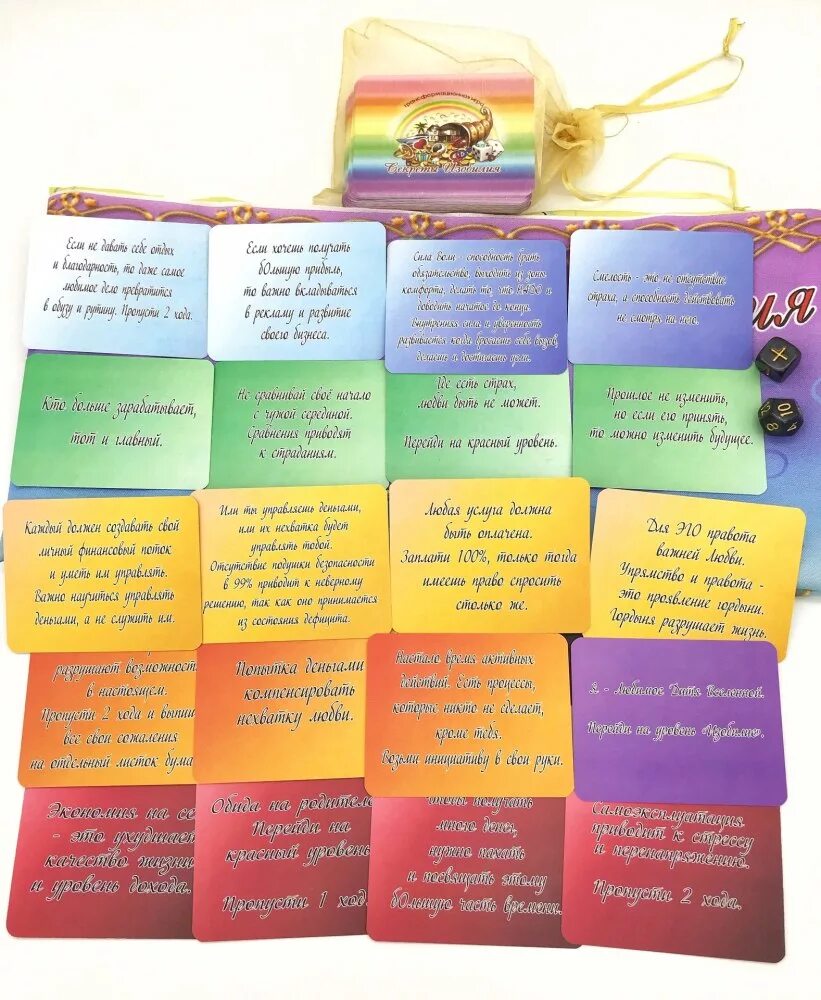 Трансформационная игра
Секреты Изобилия
Если не давать себе отдых
и благодарность, то даже самое
любимое дело превратится
в обузу и рутину. Пропусти 2 хода.
Если хочешь получать
бОльшую прибыль,
то важно вкладываться
в рекламу и развитие
своего бизнеса.
Сила Воли - способность брать
обязательство, выходить из зоны
комфорта, делать то, что НАДО и
доводить начатое до конца.
Внутренняя сила и уверенность
развивается когда бросаешь себе вызов,
делаешь и достигаешь цели.
Смелость - это не отсутствие
страха, а способность действовать
не смотря на него.
ия
Кто больше зарабатывает,
тот и главный.
Не сравнивай своё начало
с чужой серединой.
Сравнения приводят
к страданиям.
Где есть страх,
любви быть не может.
Перейди на красный уровень.
Прошлое не изменить,
но если его принять,
то можно изменить будущее.
10
Каждый должен создавать свой
личный финансовый поток
и уметь им управлять.
Важно научиться управлять
деньгами, а не служить им.
Или ты управляешь деньгами,
или их нехватка будет
управлять тобой.
Отсутствие подушки безопасности
в 99% приводит к неверному
решению, так как оно принимается
из состояния дефицита.
Любая услуга должна
быть оплачена.
Заплати 100%, только тогда
имеешь право спросить
столько же.
Для ЭГО правота
важней Любви.
Упрямство и правота -
это проявление гордыни.
Гордыня разрушает жизнь.
разрушают возможност
в настоящем.
Пропусти 2 хода и выпиш
все свои сожаления
на отдельный листок бума
Попытка деньгами
компенсировать
нехватку любви.
Настало время активных
действий. Есть процессы,
которые никто не сделает,
кроме тебя.
Возьми инициативу в свои руки.
Я - Любимое Дитя Вселенной.
Перейди на уровень «Изобилие».
Экономия на се
- это ухудшает
качество жизни
и уровень дохода.
Обида на родителе
Перейди на
красный уровень
Пропусти 1 ход
Чтобы получать
много денег,
нужно пахать
и посвящать этому
бОльшую часть времени.
Самоэксплуатация
приводит к стрессу
и перенапряжению.
Пропусти 2 хода.